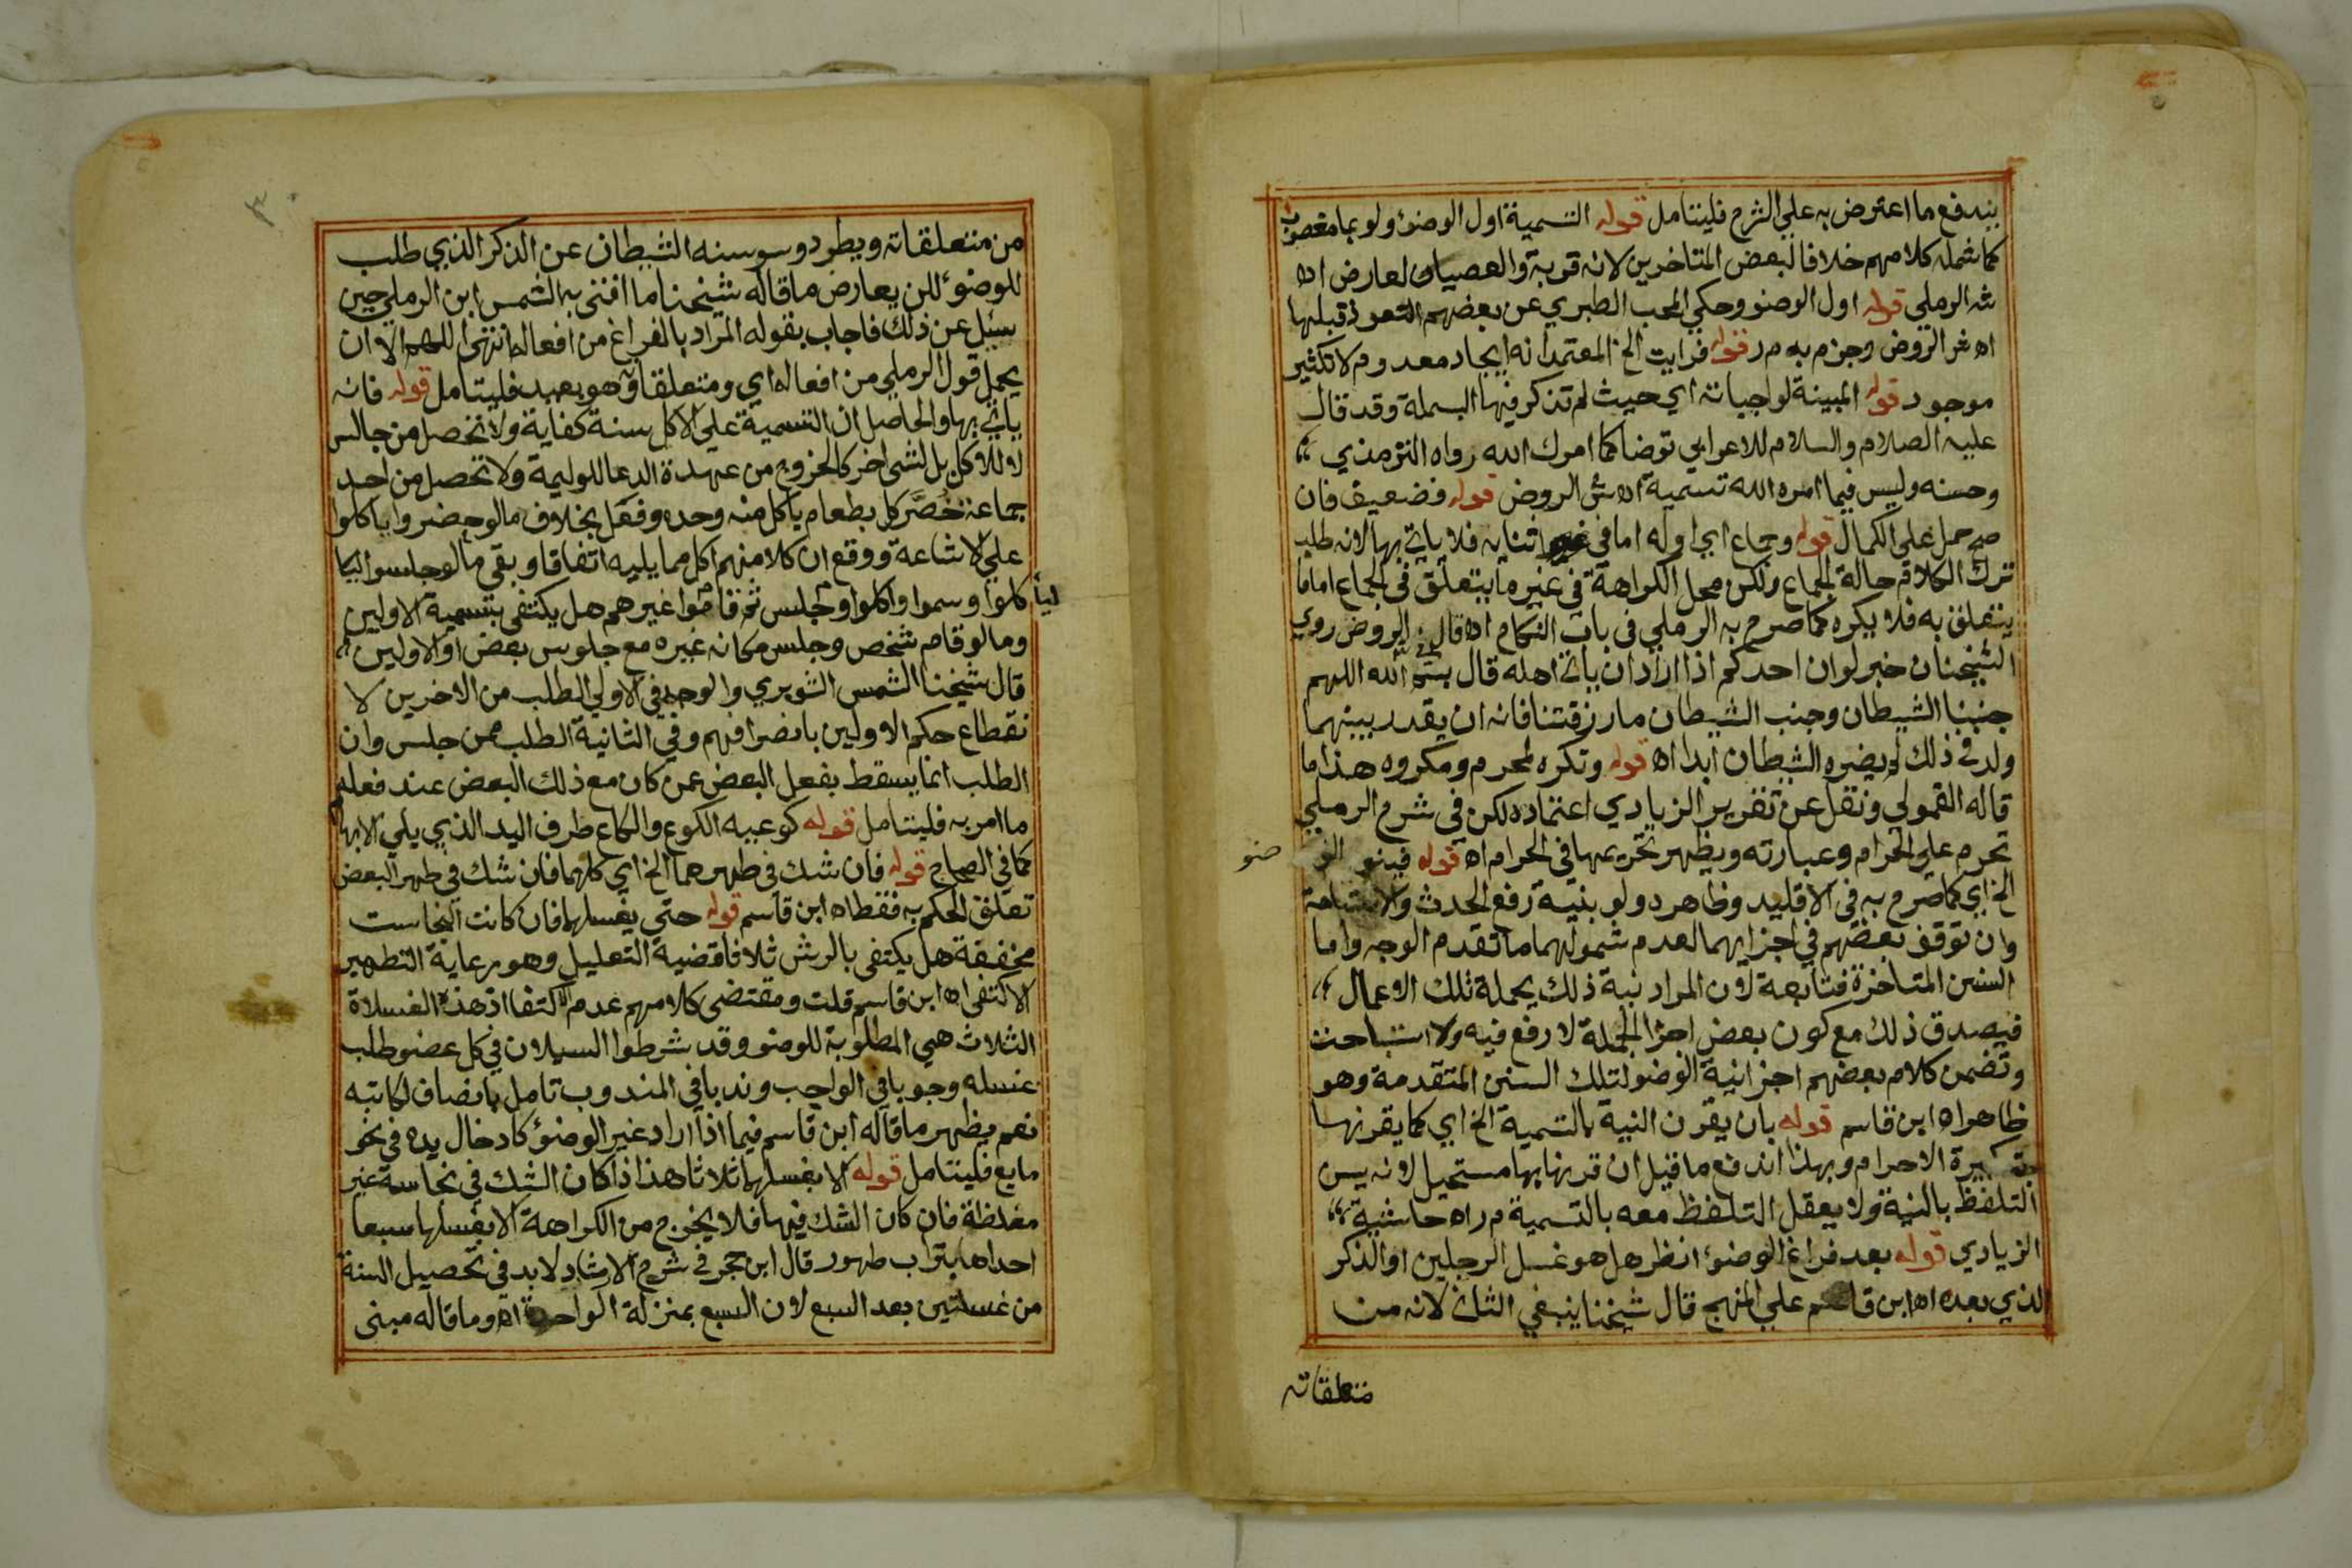 يندفع ما اعترض به علي الشرح فليتامل قوله التسمية اول الوضوء ولو بما مغصوب
كما شمله كلامهم خلافا لبعض المتاخرين لانه قربة والعصيان لعارض اه
شه الرملي قوله اول الوضو وحكي المحب الطبري عن بعضهم التعوذ قبلها
اه شر الروض وجزم به م ر قوله فرايت الخ المعتمد انه ايجاد معدوم لا تكثير
موجود قوله المبينة لواجباته اي حيث لم تذكر فيها البسملة وقد قال
عليه الصلاة والسلام للاعرابي توضا كما امرك الله رواه الترمذي
وحسنه وليس فيما امره الله تسمية اه ش الروض قوله فضعيف فان
صح حمل علي الكمال قوله وجماع اي اوله اما في اثنايه فلا ياتي بها لانه طلب
ترك الكلام حالة الجماع ولكن محل الكراهة في غير ما يتعلق في الجماع اما ما
يتعلق به فلا يكره كما صرح به الرملي في باب النكاح اه قال في الروض روي
الشيخان خبر لو ان احدكم اذا اراد ان ياتي اهله قال بسم الله اللهم
جنبنا الشيطان وجنب الشيطان ما رزقتنا فانه ان يقدر بينهما
ولد في ذلك لم يضره الشيطان ابدا اه قوله وتكره لمحرم ومكروه هذا ما
قاله القمولي ونقل عن تقرير الزيادي اعتماده لكن في شرح الرملي
تحرم علي الحرام وعبارته ويظهر تحريمها في الحرام اه قوله فينو الو
ضو
الخ اي كما صرح به في الاقليد وظاهر د ولو بنية رفع الحدث والاستباحة
وان توقف بعضهم في اجزايهما لعدم شمولهما ما تقدم الوجه واما
السنن المتاخرة فتابعة لان المراد نية ذلك بجملة تلك الاعمال
فيصدق ذلك مع كون بعض اجزا الجملة لا رفع فيه ولا استباحت
وتضمن كلام بعضهم اجزا نية الوضو لتلك السنن المتقدمة وهو
ظاهر اه ابن قاسم قوله بان يقرن النية بالتسمية الخ اي كما يقرنها
بتكبيرة الاحرام وبهذا اندفع ما قيل ان قرنها بها مستحيل لانه يسن
التلفظ بالنية ولا يعقل التلفظ معه بالتسمية م ر اه حاشية
الزيادي قوله بعد فراغ الوضوء انظر هل هو غسل الرجلين او الذكر
الذي بعده اه ابن قاسم علي المنهج قال شيخنا ينبغي الثاني لانه من
متعلقاته
٣
من متعلقاته ويطرد وسوسنه الشيطان عن الذكر الذي طلب
للوضوء لكن يعارض ما قاله شيخنا ما افتي به الشمس ابن الرملي حين
سئيل عن ذلك فاجاب بقوله المراد بالفراغ من افعاله انتهي اللهم الا ان
يحمل قول الرملي من افعاله اي ومتعلقاته وهو بعيد فليتامل قوله فانه
ياتي بها والحاصل ان التسمية علي الاكل سنة كفاية ولا تحصل من جالس
لا للاكل بل لشي اخر كالخروج من عهدة الدعا للوليمة ولا تحصل من احد
جماعة خُصَّ كل بطعام ياكل منه وحده وفعل بخلاف ما لو حضروا ياكلوا
علي الاشاعة ووقع ان كلا منهم اكل مما يليه اتفاقا وبقي ما لو جلسوا ليا
كلوا وسموا واكلوا وجلس ثم قاموا غيرهم هل يكتفي بتسمية الاولين
ليا
وما لو قام شخص وجلس مكانه غيره مع جلوس بعض الاولين
قال شيخنا الشمس الشوبري والوجه في الاولي الطلب من الاخرين لا
نقطاع حكم الاولين بانصرافهم وفي الثانية الطلب ممن جلس وان
الطلب انما يسقط بفعل البعض عمن كان مع ذلك البعض عند فعله
ما امر به فليتامل قوله كوعيه الكوع والكاع طرف اليد الذي يلي الابهام
كما في الصحاح قوله فان شك في طهرهما الخ اي كلهما فان شك في طهر البعض
تعلق الحكم به فقط اه ابن قاسم قوله حتي يغسلهما فان كانت النجاست
مخففة هل يكتفي بالرش ثلاثا قضية التعليل وهو رعاية التطهير
الاكتفي اه ابن قاسم قلت ومقتضي كلامهم عدم الاكتفا اذ هذه الغسلاة
الثلاث هي المطلوبة للوضو وقد شرطوا السيلان في كل عضو طلب
غسله وجوبا في الواجب وندبا في المندوب تامل بانصاف لكاتبه
نعم يظهر ما قاله ابن قاسم فيما اذا اراد غير الوضوء كادخال يده في نحو
مايع فليتامل قوله الا بغسلهما ثلاثا هذا اذا كان الشك في نجاسة غير
مغلظة فان كان الشك فيها فلا يخرج من الكراهة الا بغسلها سبعا
احداها بتراب طهور قال ابن حجر في شرح الارشاد لابد في تحصيل السنة
من غسلتين بعد السبع لان السبع بمنزلة الواحدة اه وما قاله مبني